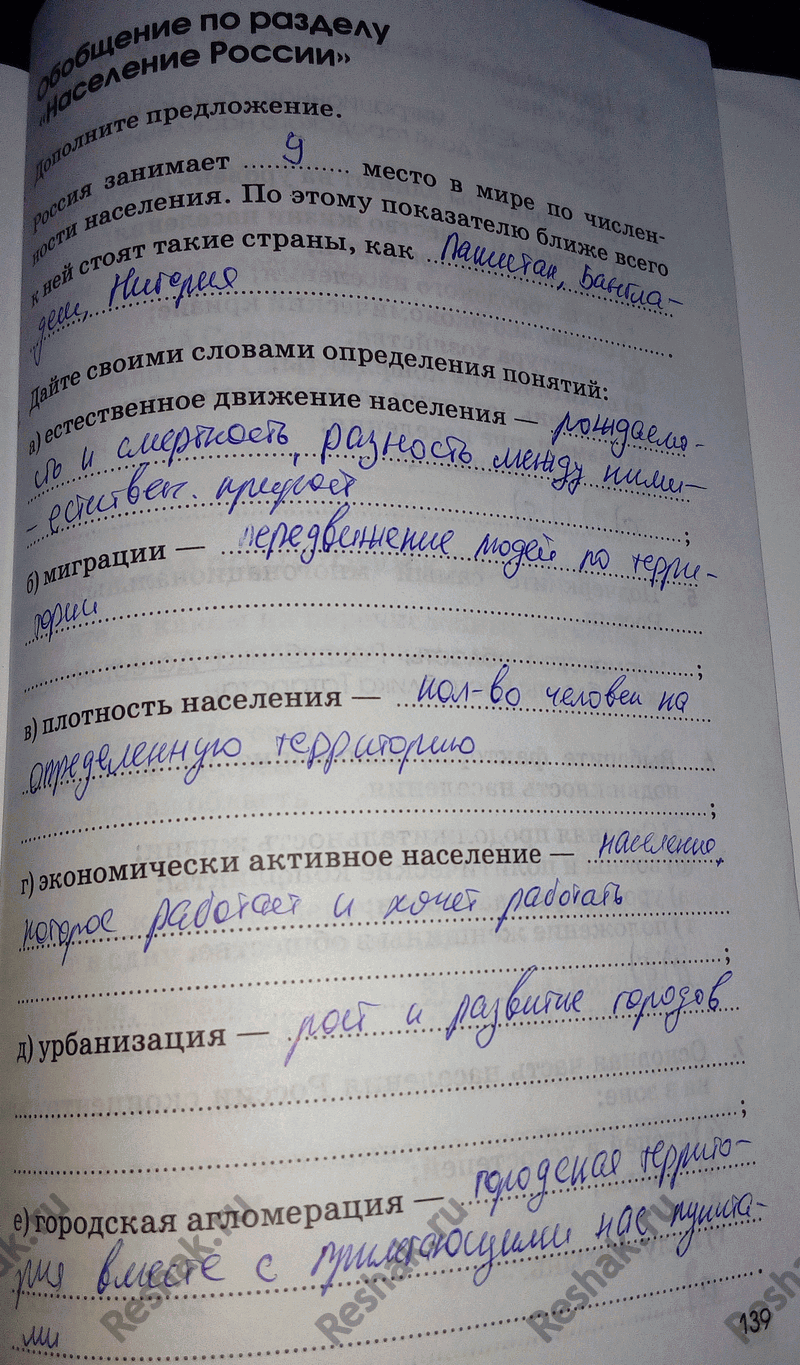 Обобщение по разделу
«Население России»
Дополните предложение.
Россия занимает 9 место в мире по числен-
ности населения. По этому показателю ближе всего
к ней стоят такие страны, как Пакистан, Бангла-
деш, Нигерия
Дайте своими словами определения понятий:
а) естественное движение населения — рождаемо-
сть и смертность, разность между ними-
- естествен. прирост ;
б) миграции — передвижение людей по терри-
тории
;
в) плотность населения — кол-во человек на
определенную территорию
;
г) экономически активное население — население,
которое работает и хочет работать
;
д) урбанизация — рост и развитие городов
;
е) городская агломерация — городская террито-
рия вместе с прилегающими нас. пункта-
ми .
139
Reshak.ru
Reshak.ru
Reshak.ru
Reshak.ru